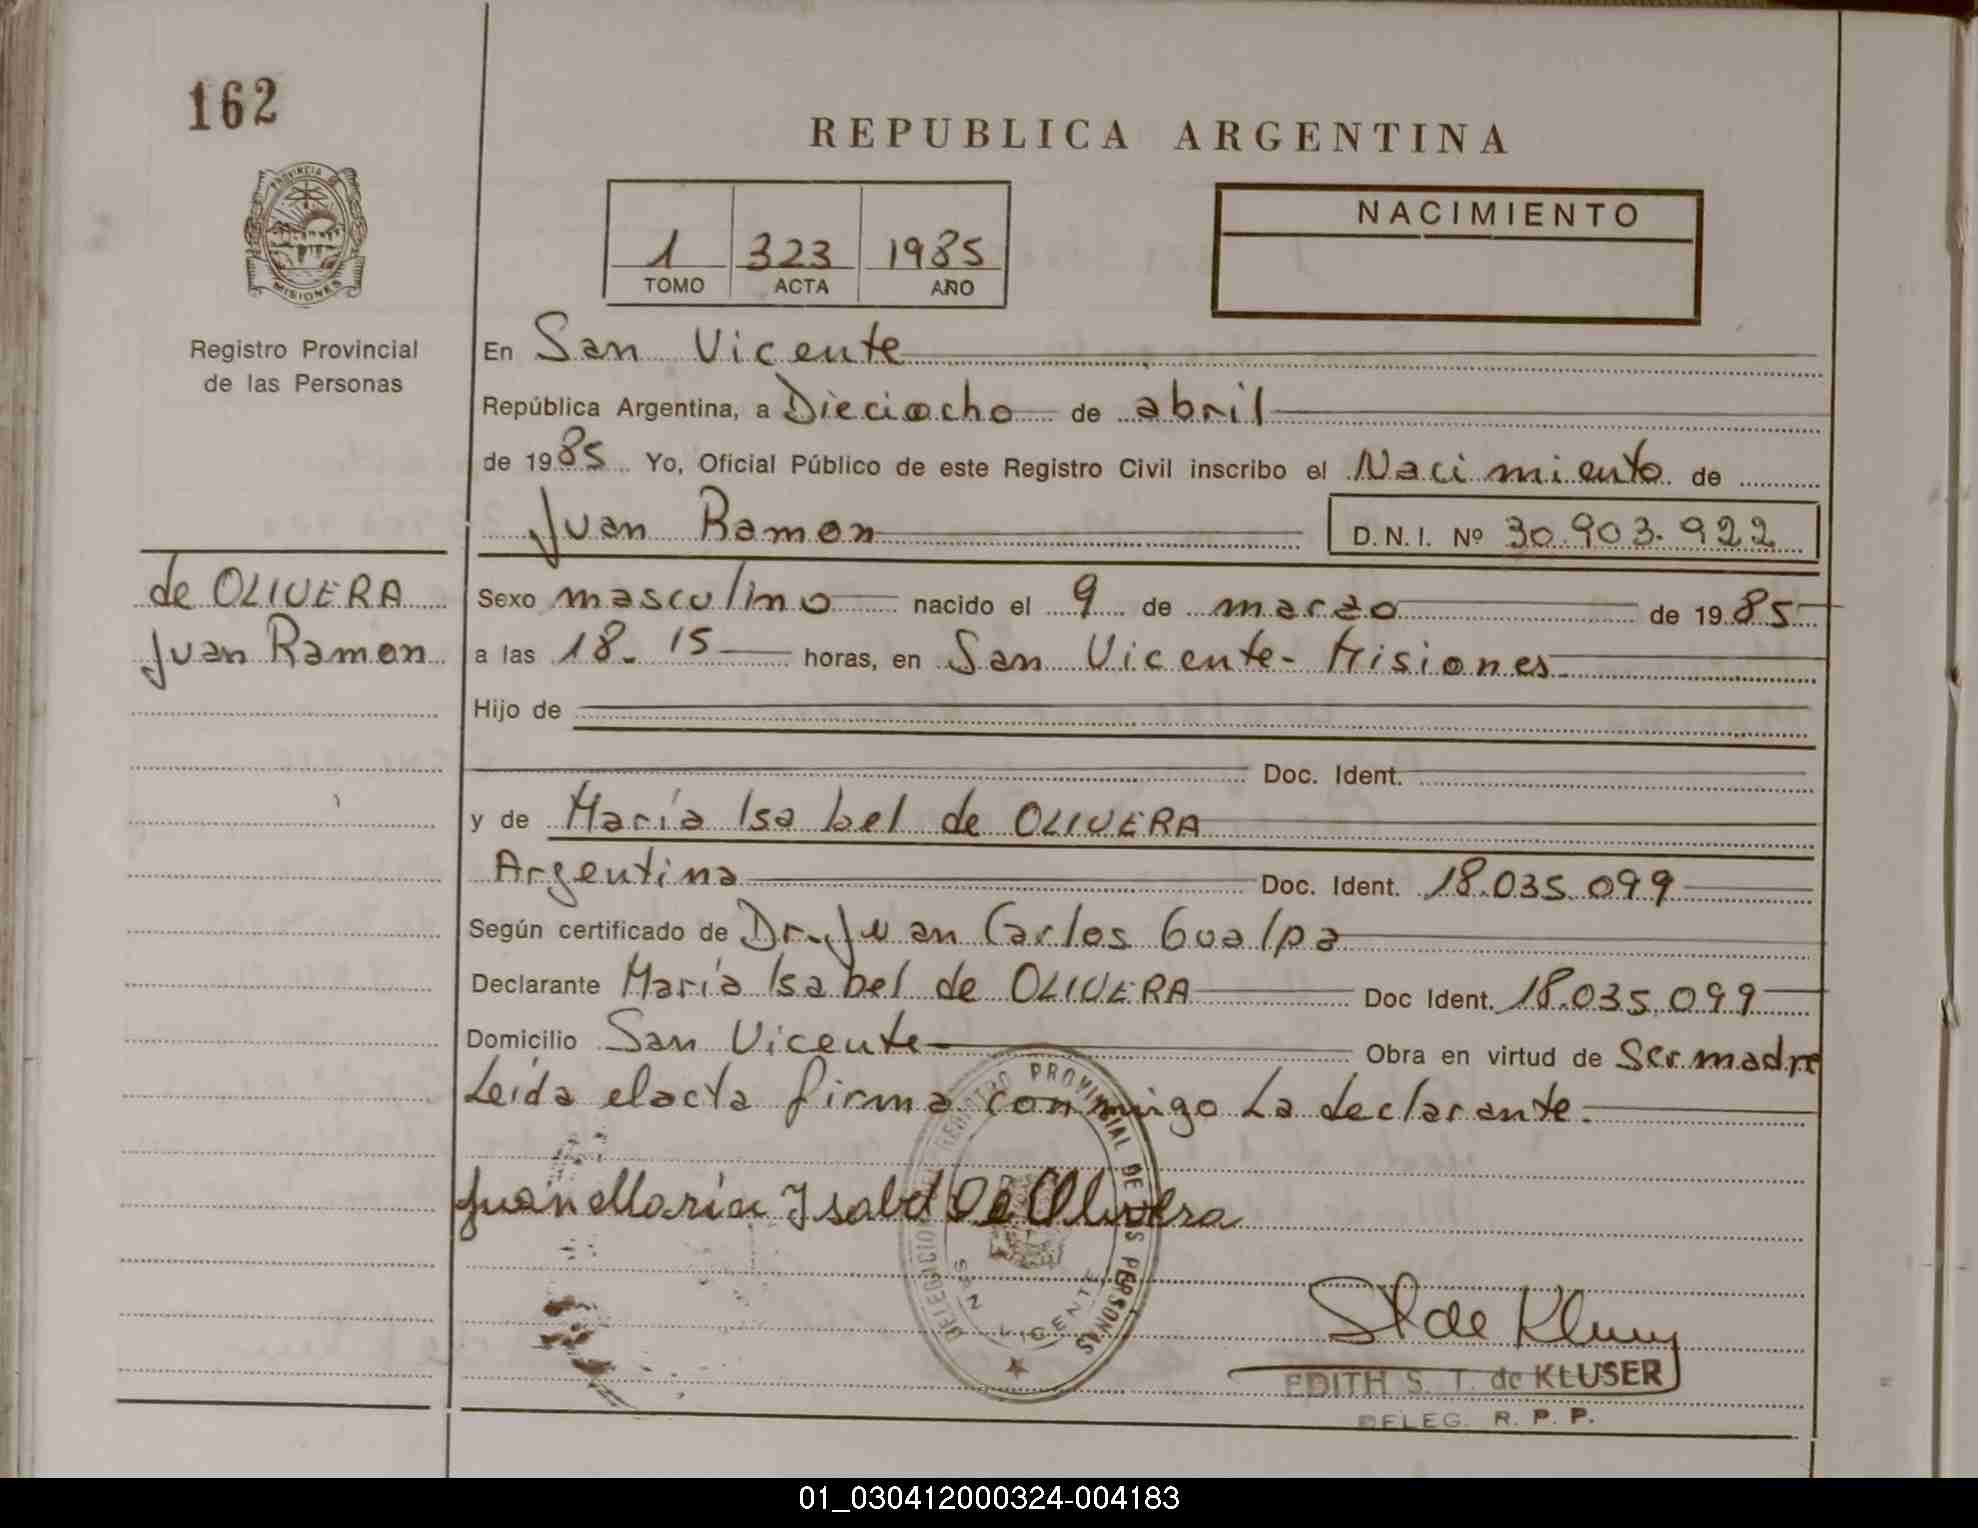 162
REPUBLICA ARGENTINA
PROVINCIA DE
MISIONES
1 323 1985
TOMO ACTA AÑO
NACIMIENTO
Registro Provincial
de las Personas
En San Vicente
República Argentina, a Dieciocho de abril
de 1985 Yo, Oficial Público de este Registro Civil inscribo el Nacimiento de
Juan Ramon D.N.I. Nº 30.903.922
de OLIVERA
Juan Ramon
Sexo masculino nacido el 9 de marzo de 1985
a las 18.15 horas, en San Vicente - Misiones
Hijo de
Doc. Ident.
y de María Isabel de OLIVERA
Argentina Doc. Ident. 18.035.099
Según certificado de Dr. Juan Carlos Gualpa
Declarante María Isabel de OLIVERA Doc Ident. 18.035.099
Domicilio San Vicente Obra en virtud de Ser madre
Leída el acta firma conmigo La declarante.
María Ysabel De Olivera
REGISTRO PROVINCIAL DE LAS PERSONAS
SAN VICENTE
EDITH S. T. de KLUSER
DELEG. R. P. P.
01_030412000324-004183